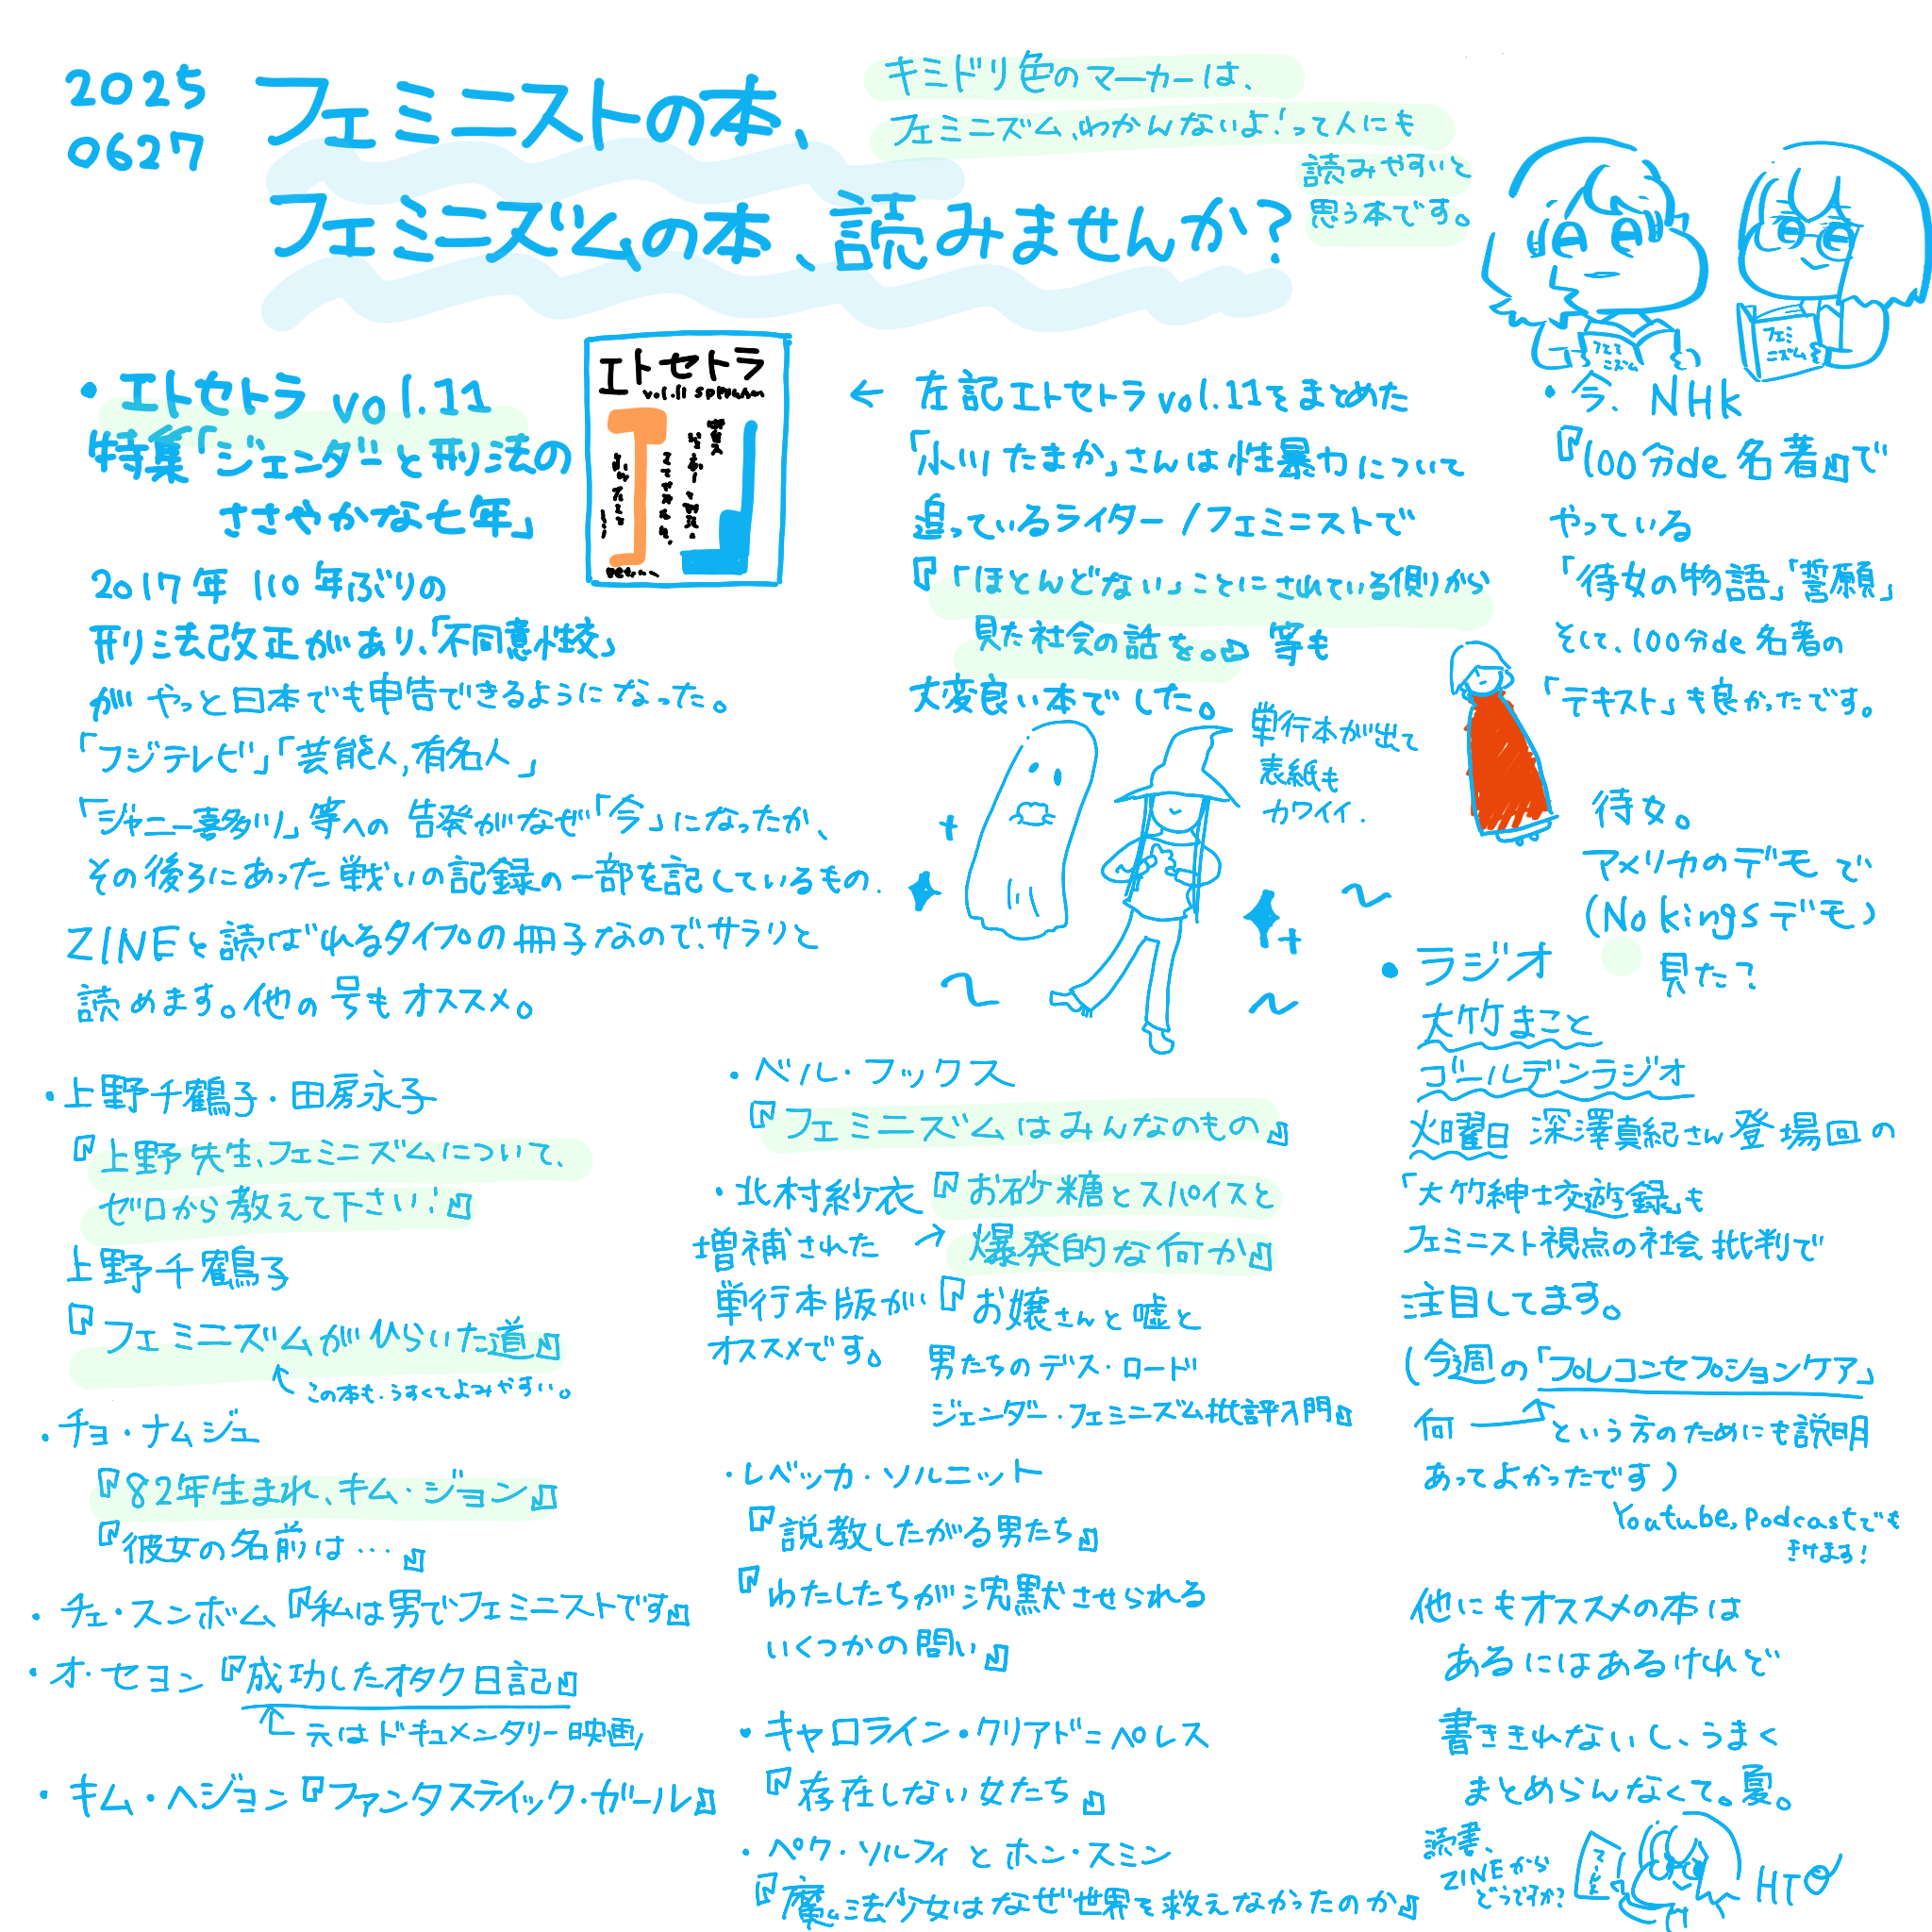 2025
0627
フェミニストの本、
フェミニズムの本、読みませんか?
キミドリ色のマーカーは、
フェミニズム、わかんないよ!って人にも
読みやすいと
思う本です。
フェミニズム
フェミニズム
・エトセトラ vol.11
特集「ジェンダーと刑法の
ささやかな七年」
エトセトラ
vol.11
2017年 110年ぶりの
刑法改正があり、「不同意性交」
がやっと日本でも申告できるようになった。
「フジテレビ」「芸能人,有名人」
「ジャニー喜多川」等への告発がなぜ「今」になったか、
その後ろにあった戦いの記録の一部を記しているもの.
ZINEと読ばれるタイプの冊子なので、サラリと
読めます。他の号もオススメ。
← 左記エトセトラvol.11をまとめた
「小川たまか」さんは性暴力について
追っているライター/フェミニストで
『「ほとんどない」ことにされている側から
見た社会の話を。』等も
大変良い本でした。
単行本が出て
表紙も
カワイイ.
・今、NHK
『100分de名著』で
やっている
「侍女の物語」「誓願」
そして、100分de名著の
「テキスト」も良かったです。
侍女。
アメリカのデモで
(No kingsデモ)
見た?
・ラジオ
大竹まこと
ゴールデンラジオ
火曜日 深澤真紀さん登場回の
「大竹紳士交遊録」も
フェミニスト視点の社会批判で
注目してます。
(今週の「プレコンセプションケア」
何 という方のためにも説明
あってよかったです)
Youtube,Podcastでも
きけます!
・上野千鶴子・田房永子
『上野先生、フェミニズムについて、
ゼロから教えて下さい!』
上野千鶴子
『フェミニズムがひらいた道』
この本も・うすくてよみやすい。
・チョ・ナムジュ
『82年生まれ、キム・ジヨン』
『彼女の名前は…』
・チェ・スンボム『私は男でフェミニストです』
・オ・セヨン『成功したオタク日記』
元はドキュメンタリー映画
・キム・ヘジョン『ファンタスティック・ガール』
・ベル・フックス
『フェミニズムはみんなのもの』
・北村紗衣『お砂糖とスパイスと
爆発的な何か』
増補された →
単行本版が
オススメです。
『お嬢さんと嘘と
男たちのデス・ロード
ジェンダー・フェミニズム批評入門』
・レベッカ・ソルニット
『説教したがる男たち』
『わたしたちが沈黙させられる
いくつかの問い』
・キャロライン・クリアド=ペレス
『存在しない女たち』
・ペク・ソルフィとホン・スミン
『魔法少女はなぜ世界を救えなかったのか』
他にもオススメの本は
あるにはあるけれど
書ききれないし、うまく
まとめらんなくて。夏。
読書、
ZINEから
どうですか?
HTO